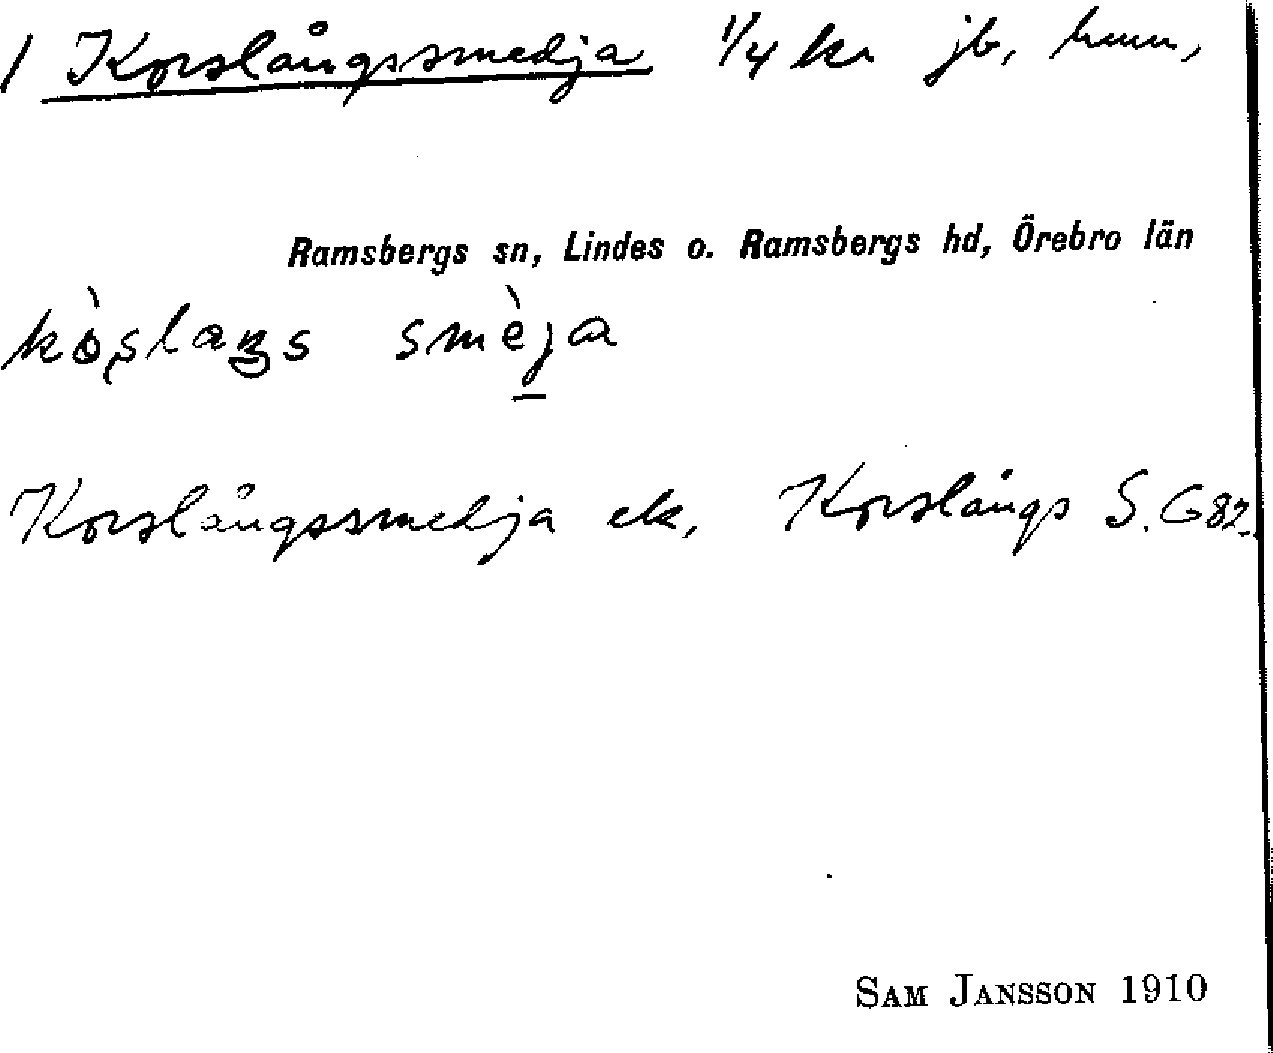 1 Korslångssmedja 1/4 kr jb, hmn,
Ramsbergs sn, Lindes o. Ramsbergs hd, Örebro län
Korslångssmedja ek, Korslångs S. G82.
SAM JANSSON 1910